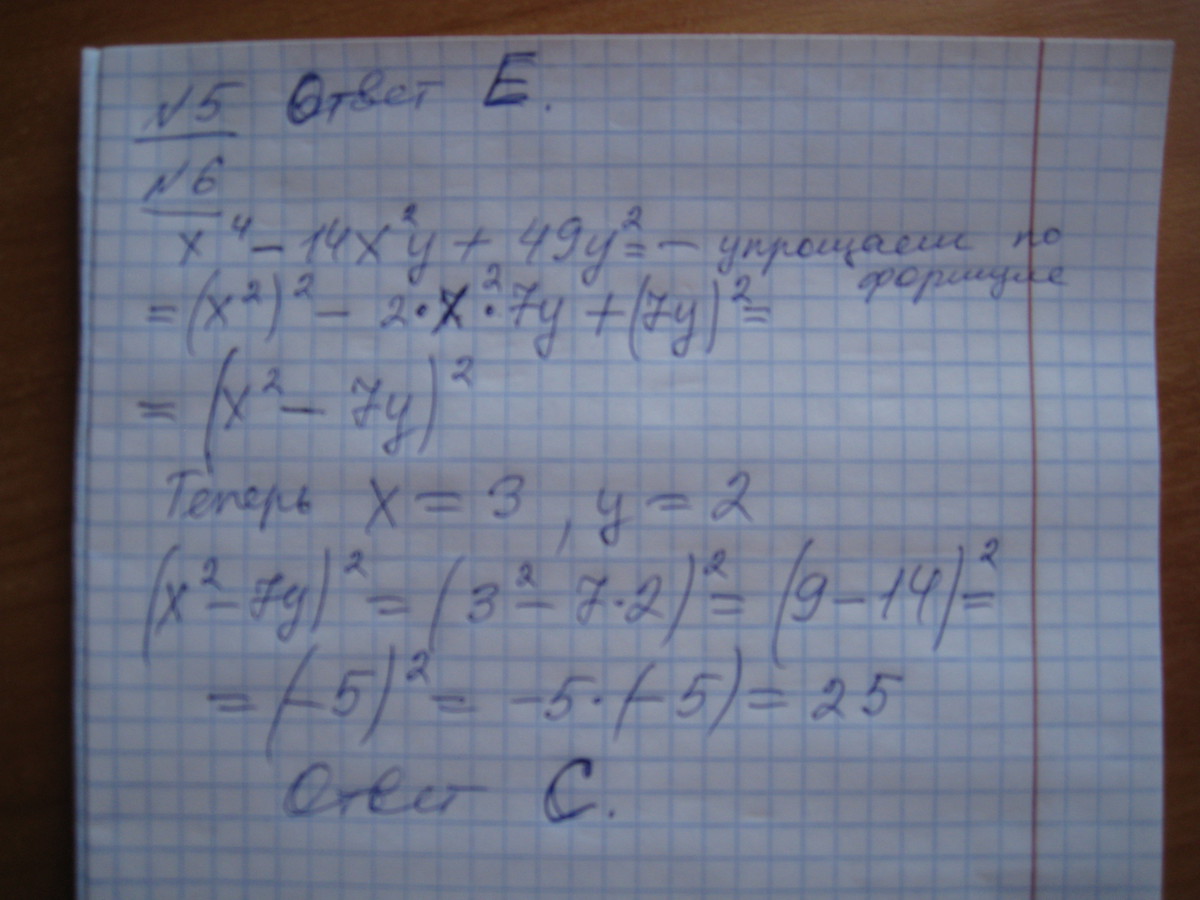 №5 Ответ E.
№6
x⁴ – 14x²y + 49y² = – упрощаем по
формуле
= (x²)² – 2·x²·7y + (7y)² =
= (x² – 7y)²
Теперь x = 3, y = 2
(x² – 7y)² = (3² – 7·2)² = (9 – 14)² =
= (–5)² = –5·(–5) = 25
Ответ C.